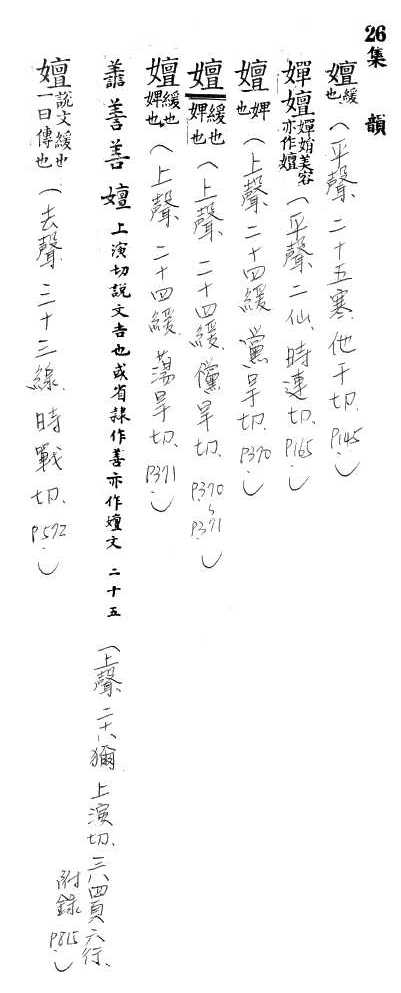 26集　韻
嬗緩也（平聲、二十五寒、他干切、P.145）
嬋嬗嬋娟美容亦作嬗（平聲、二仙、時連切、P.165）
嬗婢也（上聲、二十四緩、黨旱切、P.370）
嬗緩也一曰婢也（上聲、二十四緩、儻旱切、P.370~P.371）
嬗緩也一曰婢也（上聲、二十四緩、蕩旱切、P.371）
譱善善　嬗上演切說文吉也或省隸作善亦作嬗文二十五（上聲、二十八獮、上演切、三八四頁六行、附錄P.815）
嬗說文緩也一曰傳也（去聲、三十三線、時戰切、P.572）